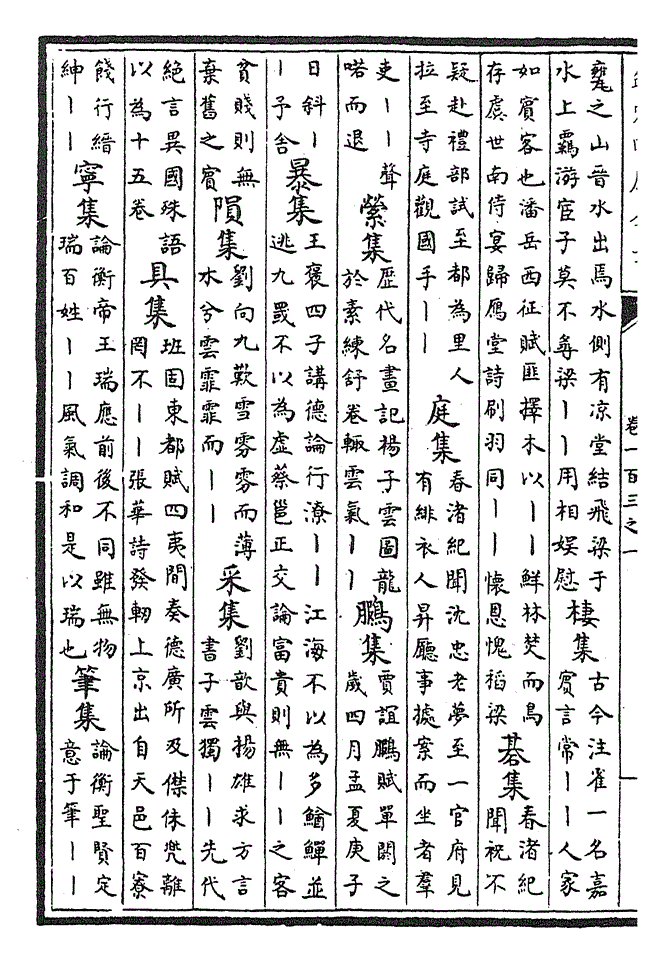 卷一百三之一
甕之山晉水出焉水側有凉堂結飛梁于
水上覊游宦子莫不尋梁丨丨用相娯慰
棲集
古今注雀一名嘉
賓言常丨丨人家
如賓客也潘岳西征賦匪擇木以丨丨鮮林焚而鳥
存虞世南侍宴歸鴈堂詩刷羽同丨丨懷恩愧稻梁
碁集
春渚紀
聞祝不
疑赴禮部試至都為里人
拉至寺庭觀國手丨丨
庭集
春渚紀聞沈忠老夢至一官府見
有緋衣人昇廳事據案而坐者羣
吏丨丨聲
喏而退
縈集
歷代名畫記楊子雲圖龍
於素練舒卷輒雲氣丨丨
鵩集
賈誼鵩賦單閼之
歲四月孟夏庚子
日斜丨
丨予舍
暴集
王褒四子講德論行潦丨丨江海不以為多鰌鱓並
逃九罭不以為虛蔡邕正交論富貴則無丨丨之客
貧賤則無
棄舊之賓
隕集
劉向九歎雪雰雰而薄
木兮雲霏霏而丨丨
采集
劉歆與揚雄求方言
書子雲獨丨丨先代
絕言異國殊語
以為十五卷
具集
班固東都賦四夷間奏德廣所及僸佅兜離
罔不丨丨張華詩發軔上京出自天邑百寮
餞行縉
紳丨丨
寧集
論衡帝王瑞應前後不同雖無物
瑞百姓丨丨風氣調和是以瑞也
筆集
論衡聖賢定
意于筆丨丨